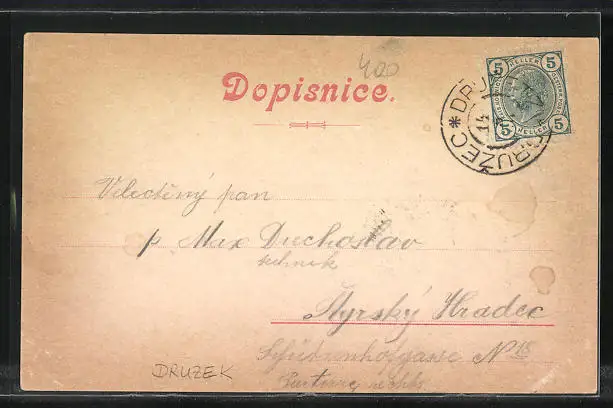 400
Dopisnice.
5 HELLER 5
5 HELLER 5
* DRUŽEC
14
Velectěný pan
p Max Duchoslav
technik
Štyrský Hradec
Schützenhofgasse N° 18
DRUZEK